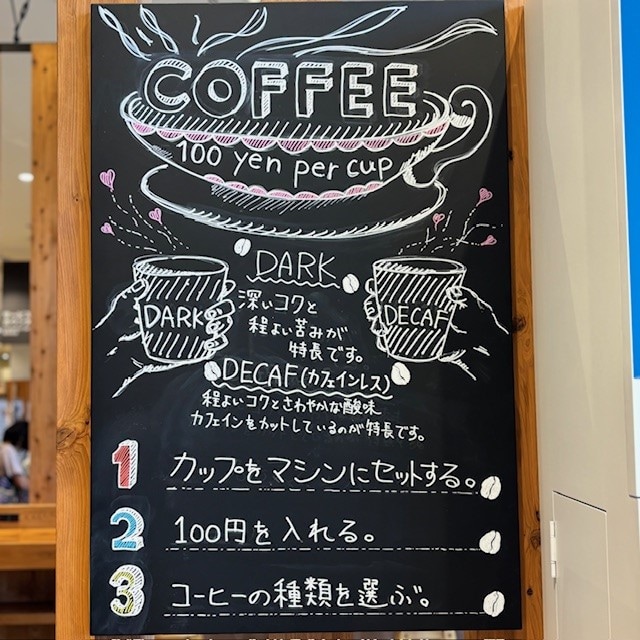 COFFEE
100 yen per cup
DARK
DARK
深いコクと
程よい苦みが
特長です。
DECAF
DECAF(カフェインレス)
程よいコクとさわやかな酸味
カフェインをカットしているのが特長です。
1 カップをマシンにセットする。
2 100円を入れる。
3 コーヒーの種類を選ぶ。